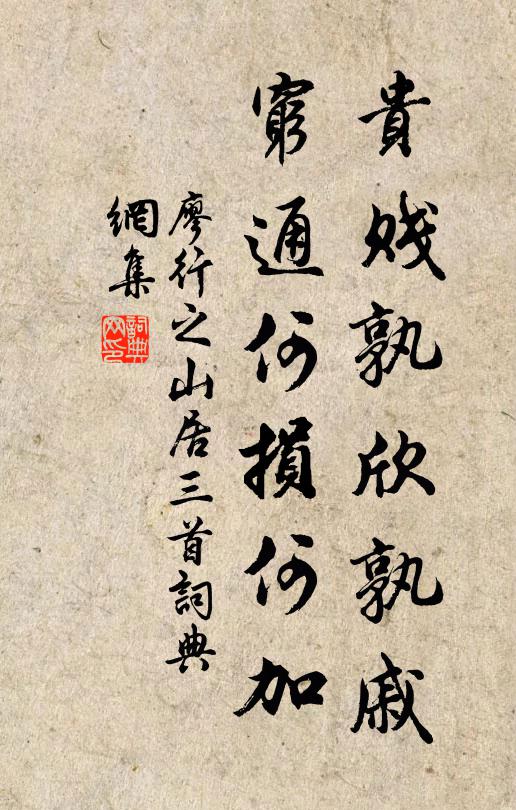 貴賤孰欣孰戚
窮通何損何加
廖行之山居三首詞典
網集
詞典
网印